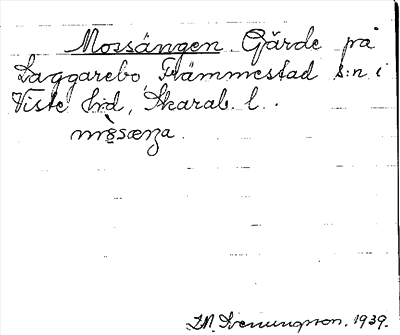 Mossängen Gärde på
Laggarebo, Främmestad s:n i
Viste hd, Skarab. l.
mòsæŋa.
D.N. Svenungsson. 1939.